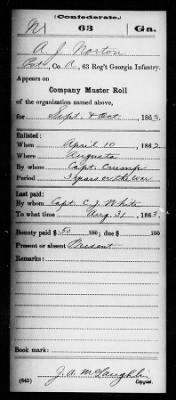 (Confederate.)
N 63 Ga.
A. J. Norton
Pvt, Co. A, 63 Reg't Georgia Infantry.
Appears on
Company Muster Roll
of the organization named above,
for Sept & Oct, 1863.
Enlisted:
When April 10, 1862
Where Augusta
By whom Capt. Crump
Period 3 years or the war
Last paid:
By whom Capt. C. J. White
To what time Aug. 31, 1863.
Bounty paid $50 100; due $ 100
Present or absent Present
Remarks:
Book mark:
(642) J. A. McLaughlin
Copyist.